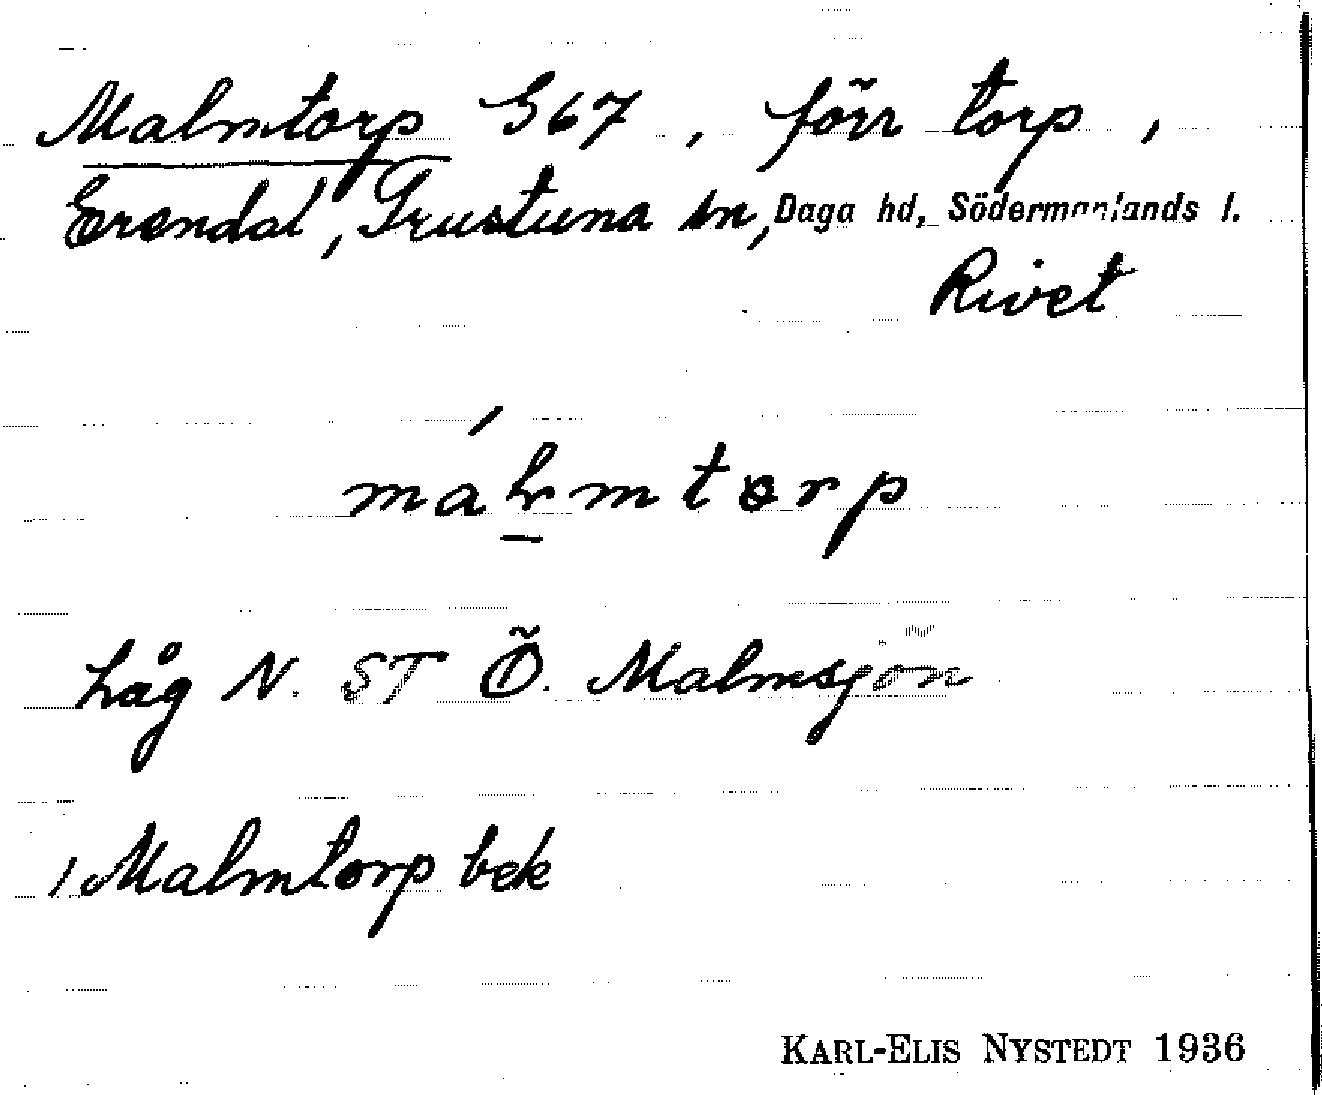 Malmtorp G67, förr torp,
Erendal, Frustuna sn, Daga hd, Södermanlands l.
Rivet
málmtorp
Låg N. ST Ö. Malmsjön
/ Malmtorp bek
KARL-ELIS NYSTEDT 1936